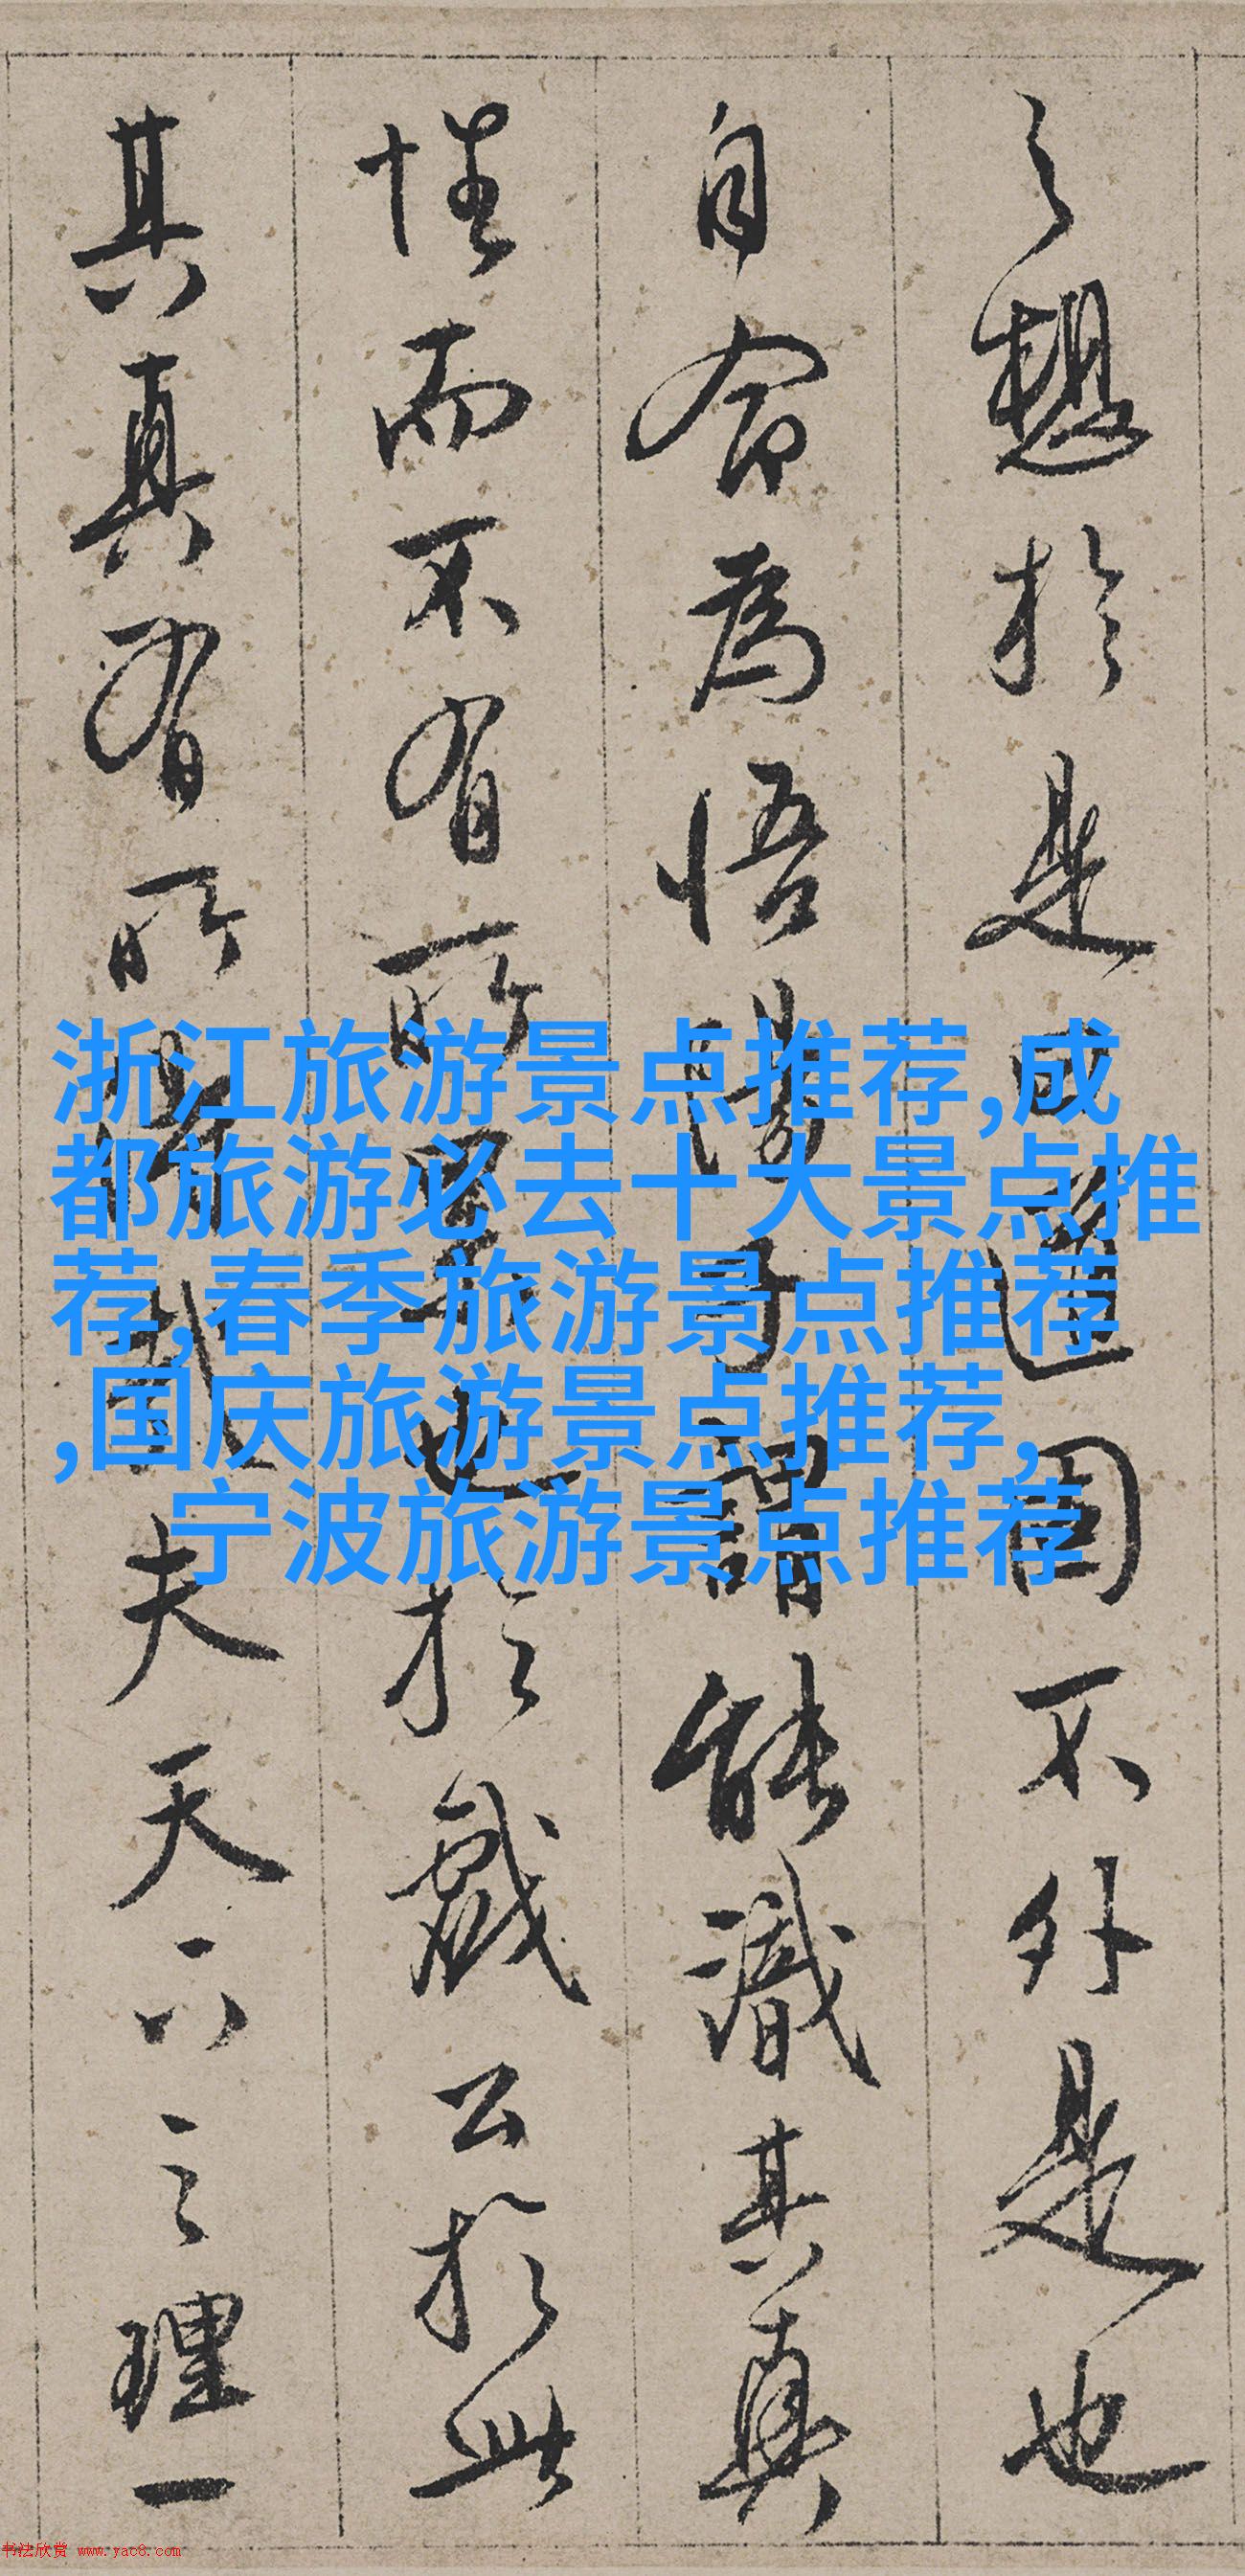 之想於是
不外是也
自命為悟
能識其真
性而不有所
也於戲公於此
其真有所
夫天下之理一
浙江旅游景点推荐,成
都旅游必去十大景点推
荐,春季旅游景点推荐
,国庆旅游景点推荐,
宁波旅游景点推荐
书法欣赏 www.yac8.com